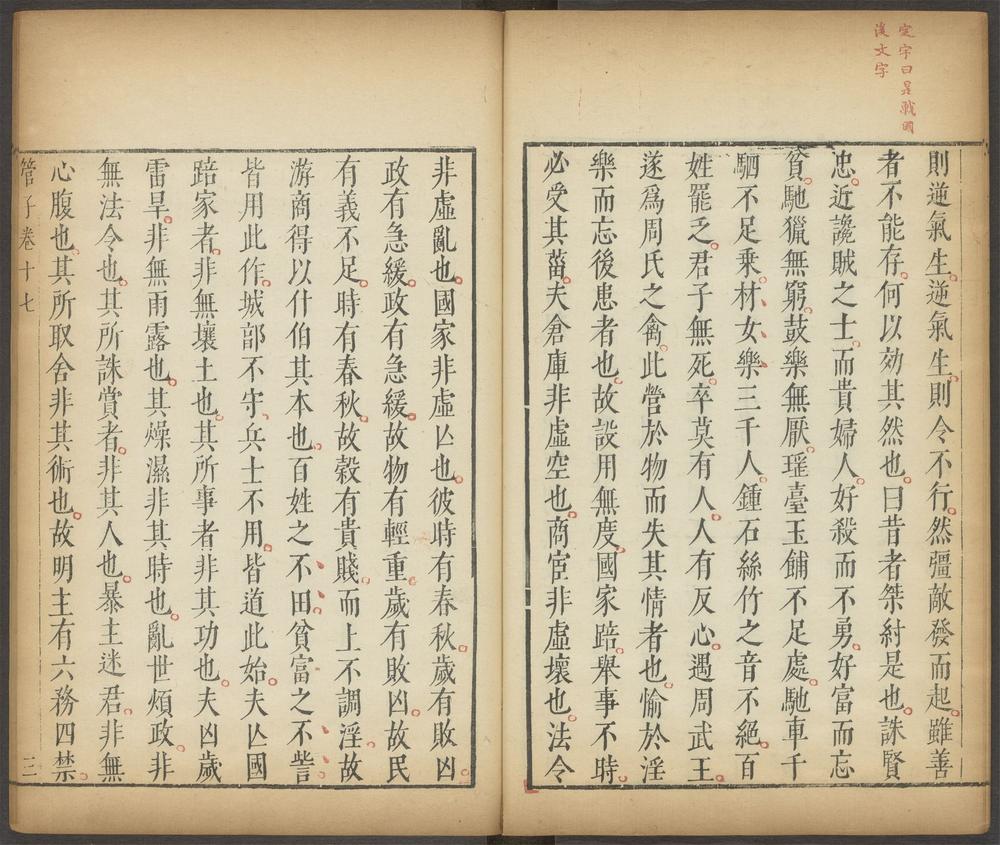 定宇曰是戰國
後文字
則逆氣生逆氣生則令不行然彊敵發而起雖善
者不能存何以効其然也曰昔者桀紂是也誅賢
忠近讒賊之士而貴婦人好殺而不勇好富而忘
貧馳獵無窮鼓樂無厭瑤臺玉餔不足處馳車千
駟不足乘材女樂三千人鍾石絲竹之音不絕百
姓罷乏君子無死卒莫有人人有反心遇周武王
遂爲周氏之禽此營於物而失其情者也愉於淫
樂而忘後患者也故設用無度國家踣舉事不時
必受其菑夫倉庫非虛空也商宦非虛壞也法令
非虛亂也國家非虛亾也彼時有春秋歲有敗凶
政有急緩政有急緩故物有輕重歲有敗凶故民
有義不足時有春秋故穀有貴賤而上不調淫故
游商得以什伯其本也百姓之不田貧富之不訾
皆用此作城郭不守兵士不用皆道此始夫亾國
踣家者非無壤土也其所事者非其功也夫凶歲
雷旱非無雨露也其燥濕非其時也亂世煩政非
無法令也其所誅賞者非其人也暴主迷君非無
心腹也其所取舍非其術也故明主有六務四禁
管子卷十七
三